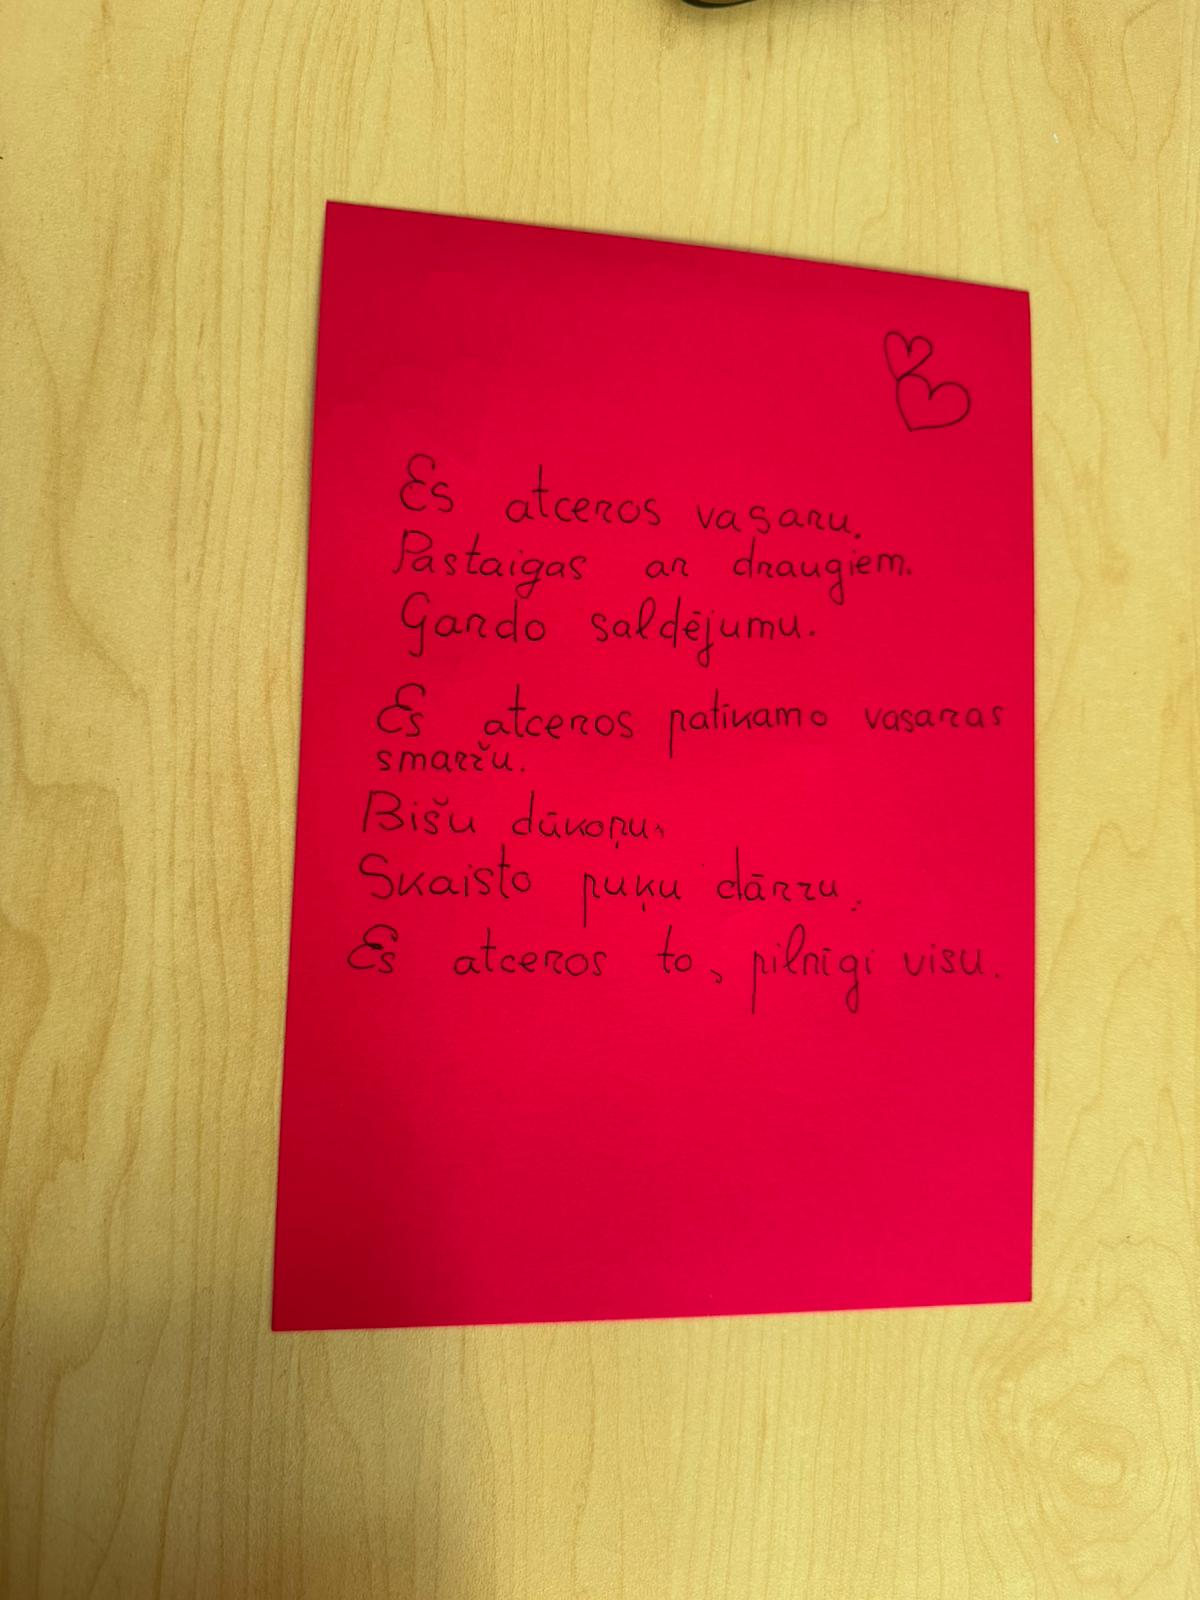 Es atceros vasaru.
Pastaigas ar draugiem.
Gardo saldējumu.
Es atceros patīkamo vasaras
smaržu.
Bišu dūkoņu.
Skaisto puķu dārzu.
Es atceros to, pilnīgi visu.